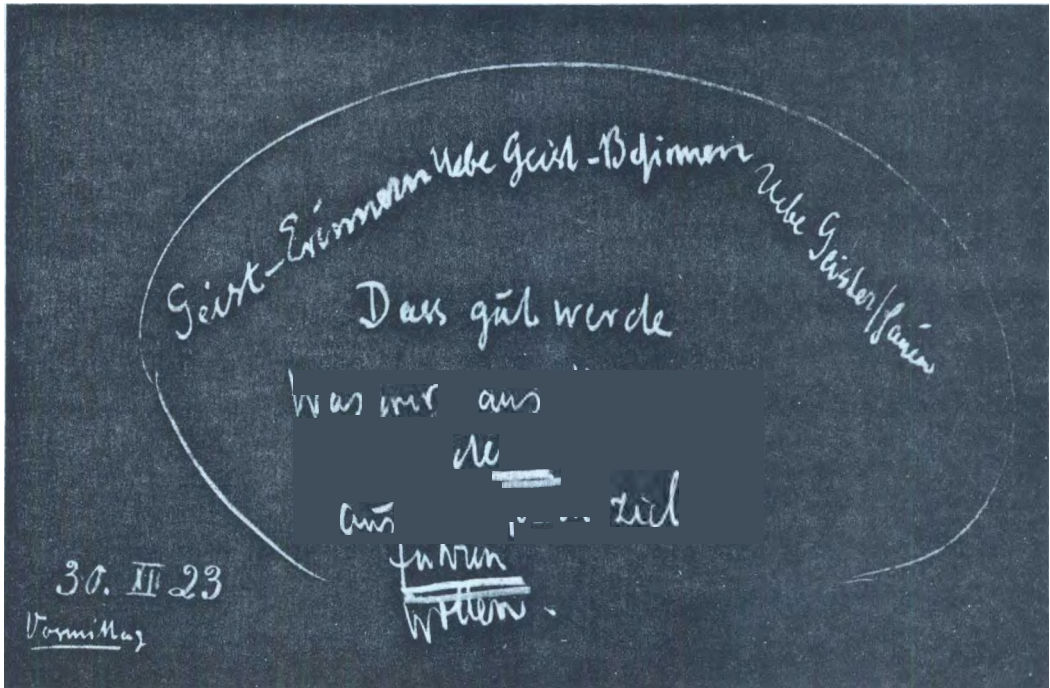 Geist-Erinnern Uebe Geist-Besinnen Uebe Geisterschauen
Dass gut werde
Was wir aus
aus ziel
führen
wollen.
30. XII 23
Vormittag